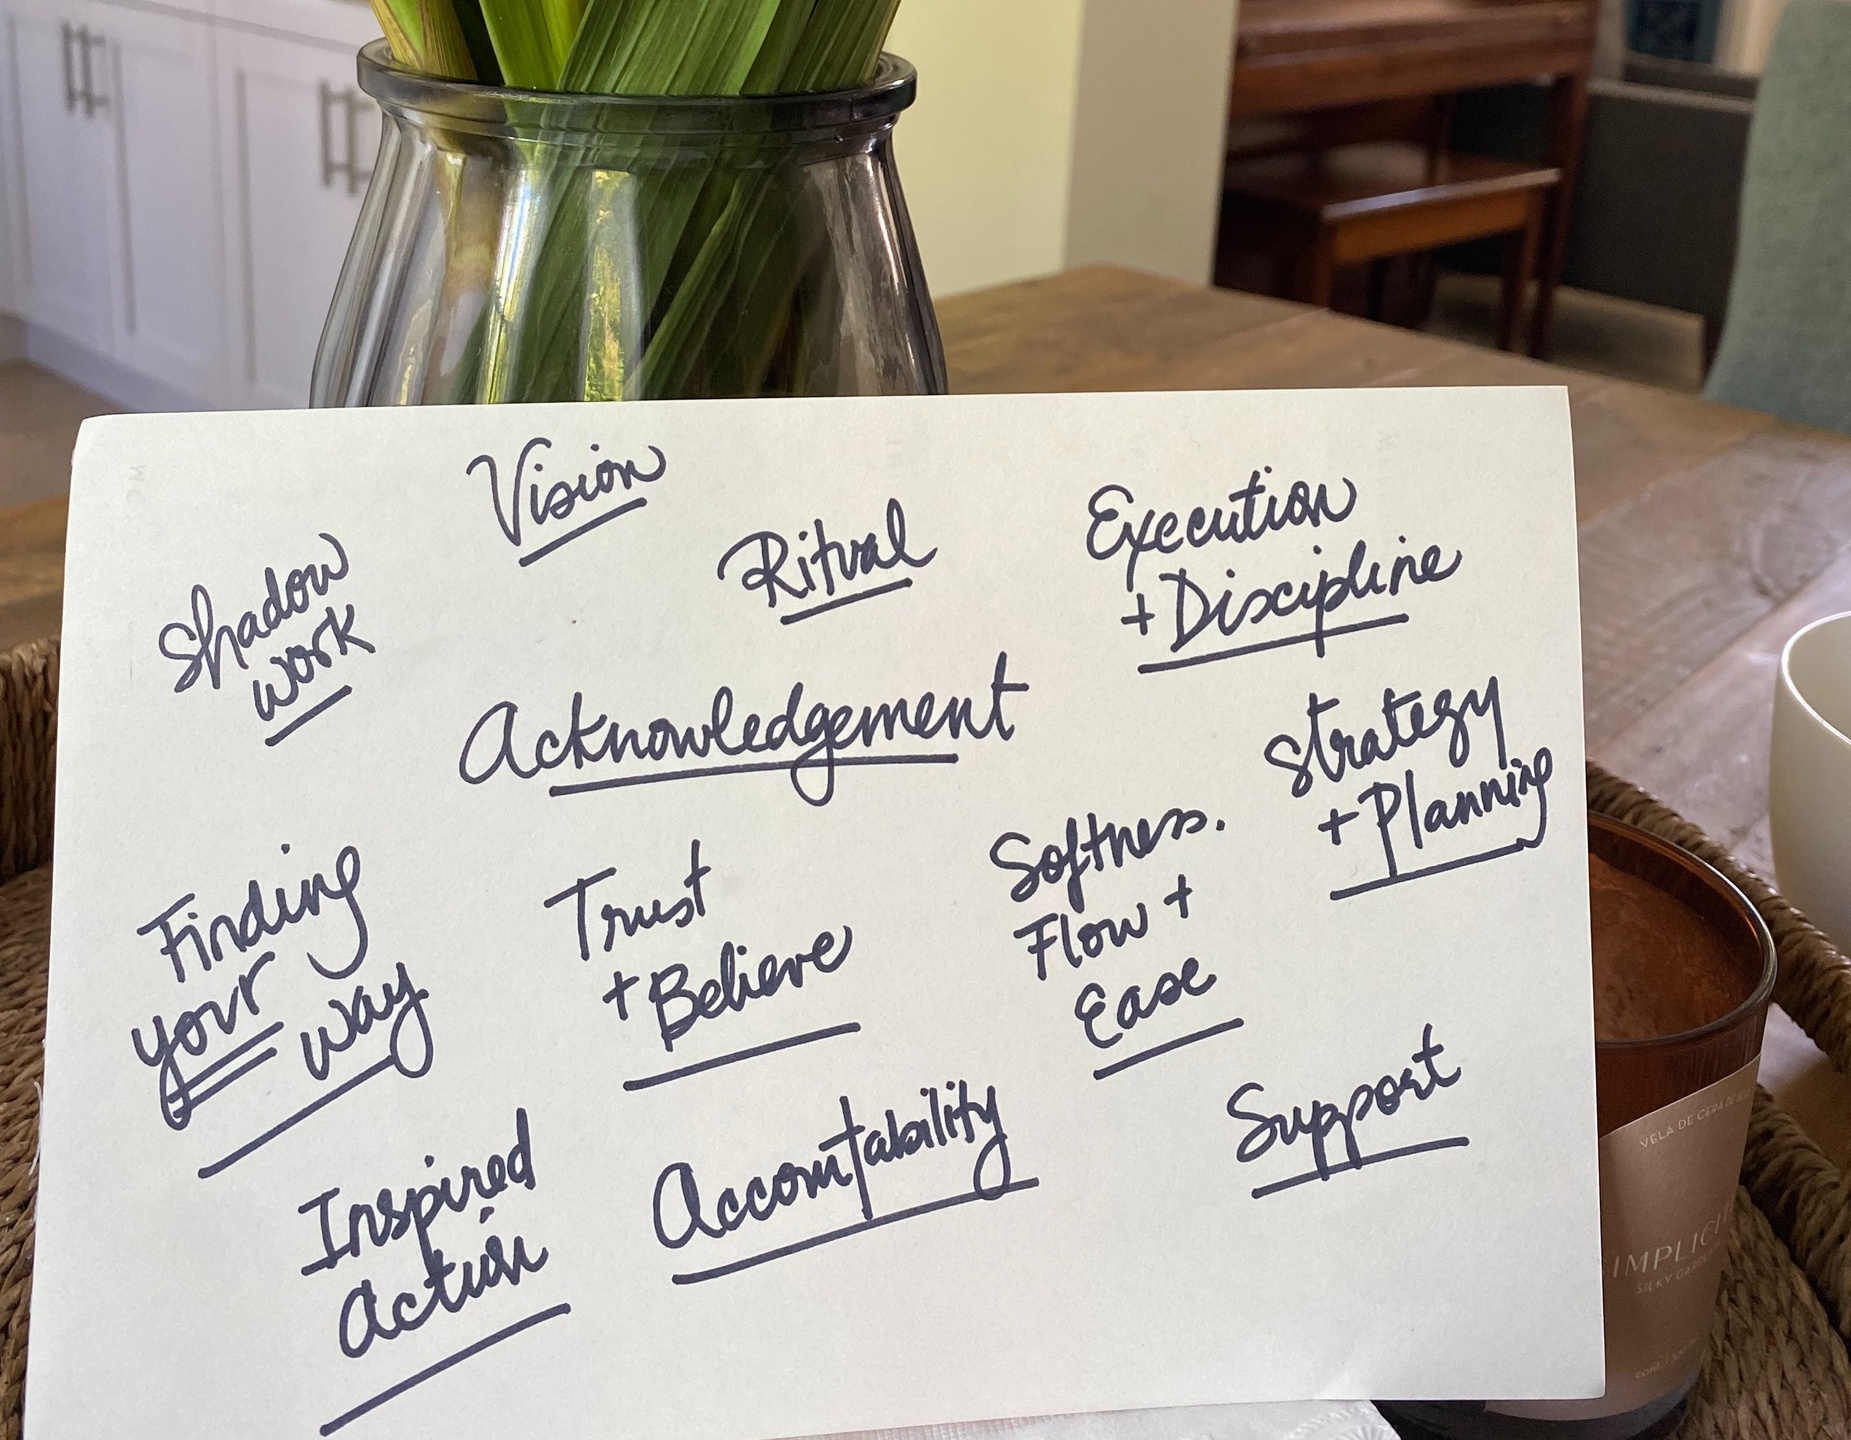 Vision
Ritual
Execution
+ Discipline
Shadow
work
Acknowledgement
Strategy
+ Planning
Finding
your way
Trust
+ Believe
Softness.
Flow +
Ease
Inspired
Action
Accountability
Support
VELA DE CERA DE
IMPLICI
SILKY